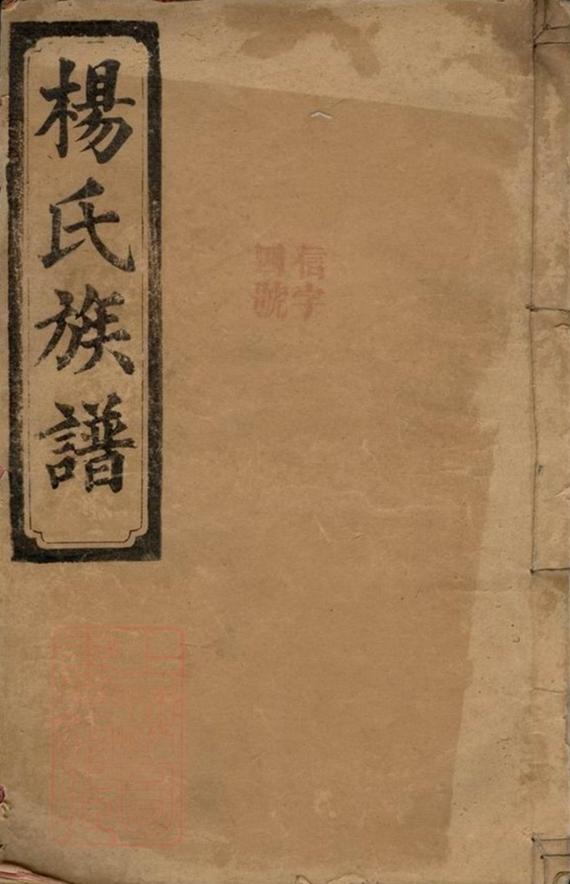 楊氏族譜
信字
四號